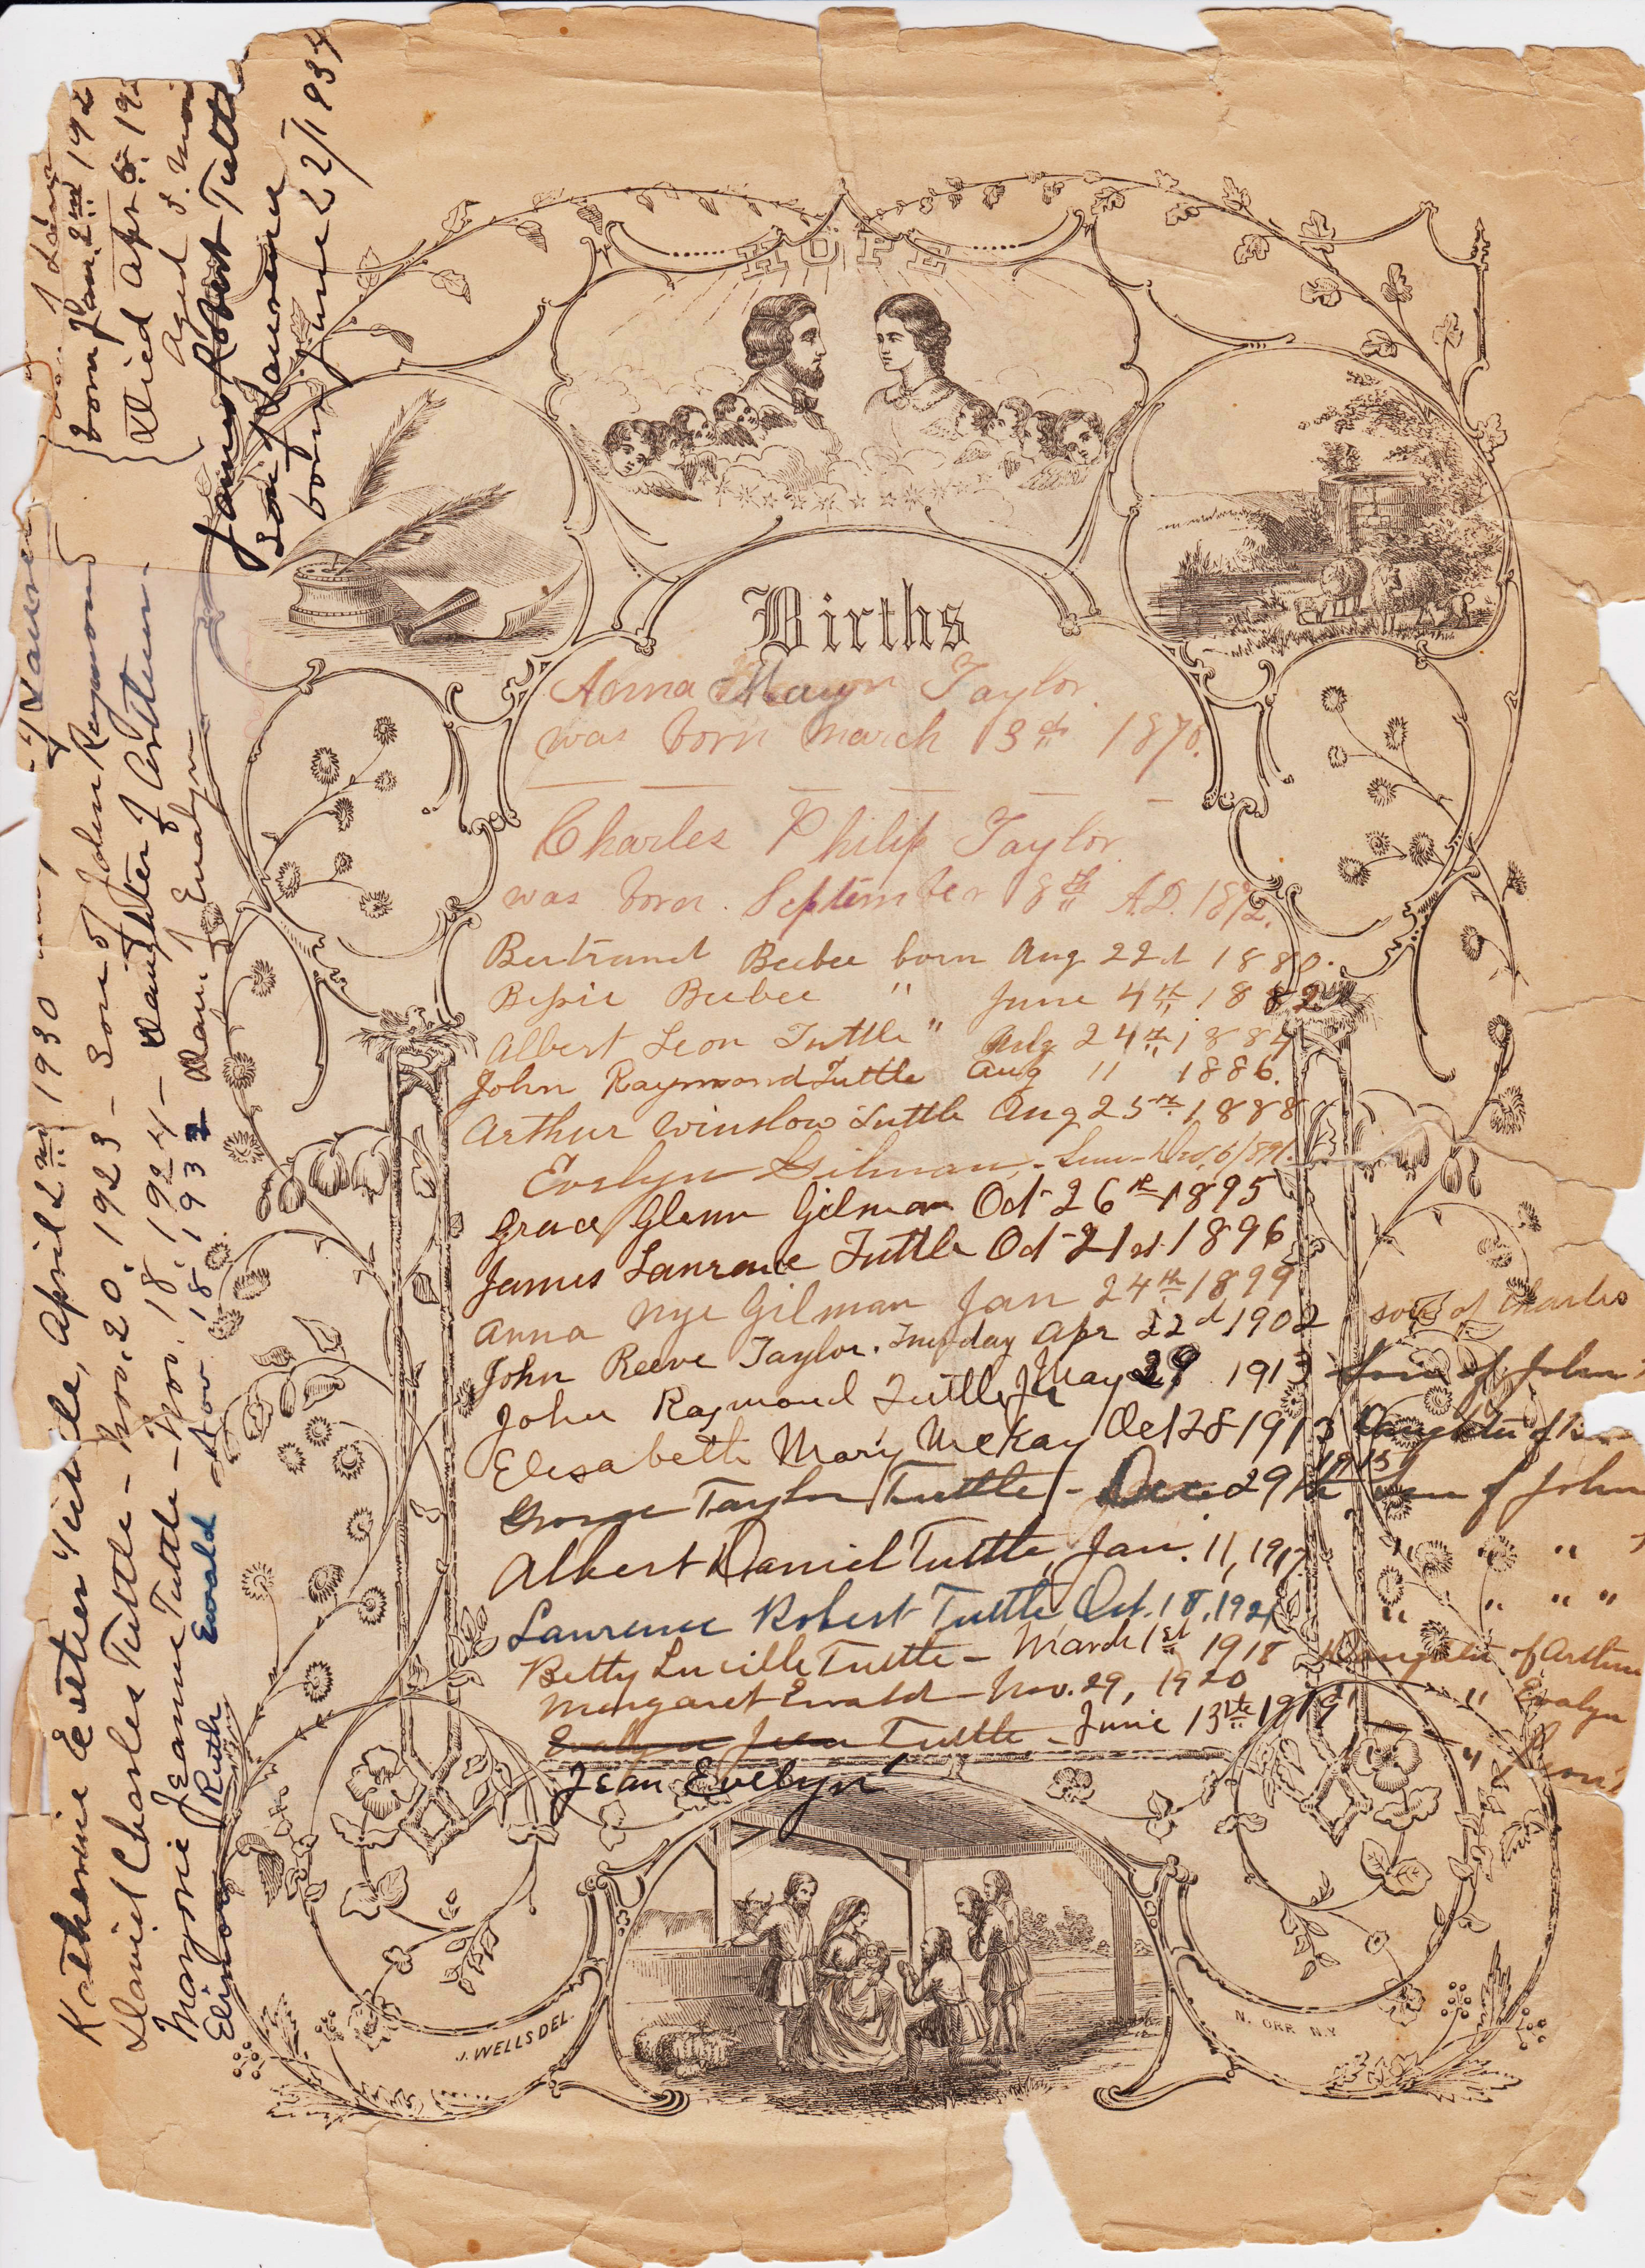 HOPE
Births
Anna May Taylor
was born March 13th 1870.
Charles Philip Taylor
was born September 8th A.D. 1872.
Bertrand Beebee born Aug 22d 1880.
Bessie Beebee " June 4th 1882
Albert Leon Tuttle " Aug 24th 1884
John Raymond Tuttle Aug 11 1886.
Arthur Winslow Tuttle Aug 25th 1888
Evelyn Gilman - 6/1891.
Grace Glenn Gilman Oct 26th 1895
James Laurence Tuttle Oct 21st 1896
Anna Nye Gilman Jan 24th 1899
John Reeve Taylor. Tuesday Apr 22d 1902 son of Charles
John Raymond Tuttle Jr May 29 1913 Son of John
Elisabeth Mary McKay Oct 28 1913 Daughter of
George Taylor Tuttle - Dec. 29th 1915 Son of John
Albert Daniel Tuttle, Jan. 11, 1917 " " "
Laurence Robert Tuttle Oct. 18, 1921 " " " "
Betty Lucille Tuttle - March 1st 1918 Daughter of Arthur
Margaret Ewald - Nov. 29, 1920 " " Evalyn
Evalyn Jean Tuttle - June 13th 1919 - "
Jean Evelyn
J. WELLS DEL.
N. ORR N.Y.
Katherine Esther Tuttle, April 2nd 1930
Daniel Charles Tuttle - Nov. 20, 1923 - Son of John Raymond
Marjorie Jeanne Tuttle - Nov. 18, 1924 - Daughter of Arthur.
Elinor Ruth Ewald Nov 18, 1932 Dau. of Evalyn
born Jan. 2nd 192
Died Apr. 6. 19
Aged 3. Mon
James Robert Tuttle
Son of Lawrence
born June 22/1934